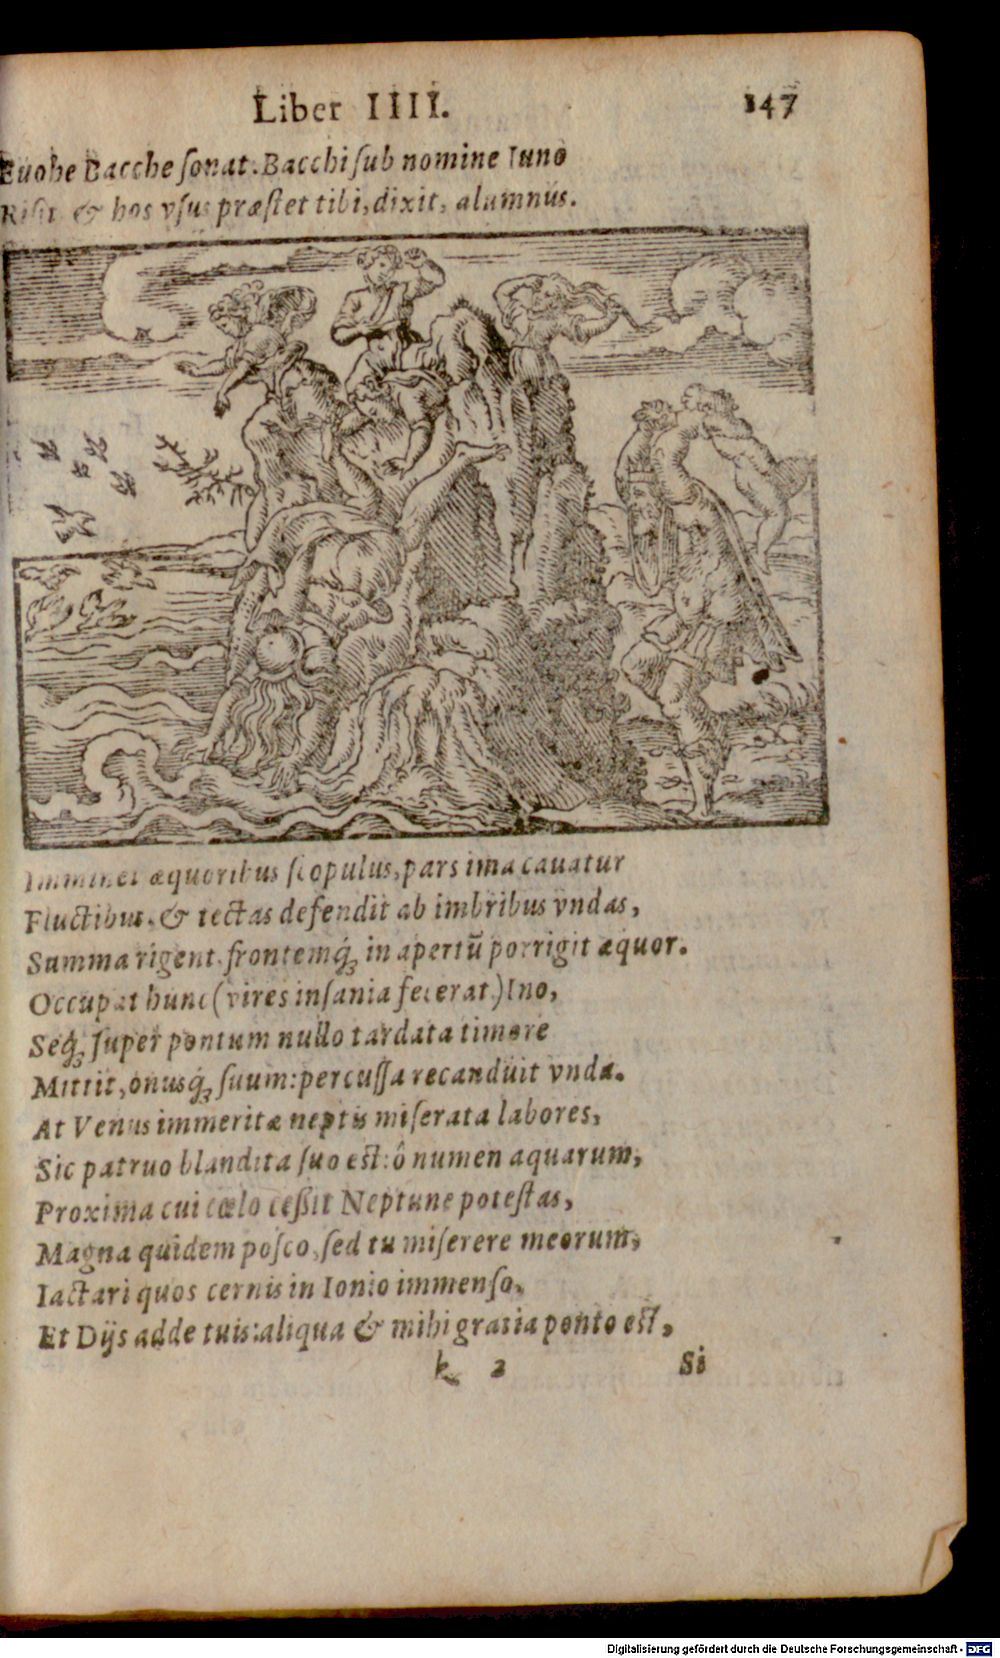 Liber IIII. 147
Euohe Bacche ſonat. Bacchi ſub nomine Iuno
Riſit & hos vſus præſtet tibi, dixit, alumnus.
Imminet æquoribus ſcopulus, pars ima cauatur
Fluctibus. & tectas defendit ab imbribus vndas,
Summa rigent. frontemq́ꝫ in apertū porrigit æquor.
Occupat hunc (vires inſania fecerat.) Ino,
Seq́ꝫ ſuper pontum nullo tardata timore
Mittit, onusq́ꝫ ſuum: percuſſa recanduit vnda.
At Venus immeritæ neptis miſerata labores,
Sic patruo blandita ſuo est: ô numen aquarum,
Proxima cui cœlo ceßit Neptune poteſtas,
Magna quidem poſco, ſed tu miſerere meorum,
Iactari quos cernis in Ionio immenſo,
Et Dijs adde tuis: aliqua & mihi gratia ponto est,
k 2 Si
Digitalisierung gefördert durch die Deutsche Forschungsgemeinschaft - DFG